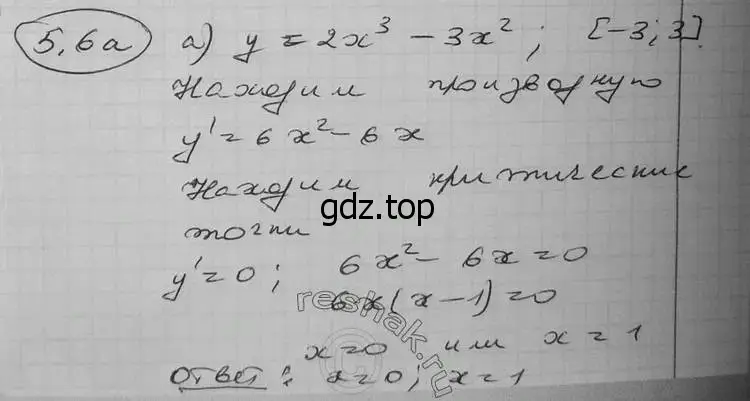 5,6а а) y = 2x³ - 3x²; [-3; 3].
Находим производную
y' = 6x² - 6x
Находим критические
точки
gdz.top
y' = 0; 6x² - 6x = 0
6x(x-1) = 0
reshak.ru
x = 0 или x = 1
Ответ: x = 0; x = 1